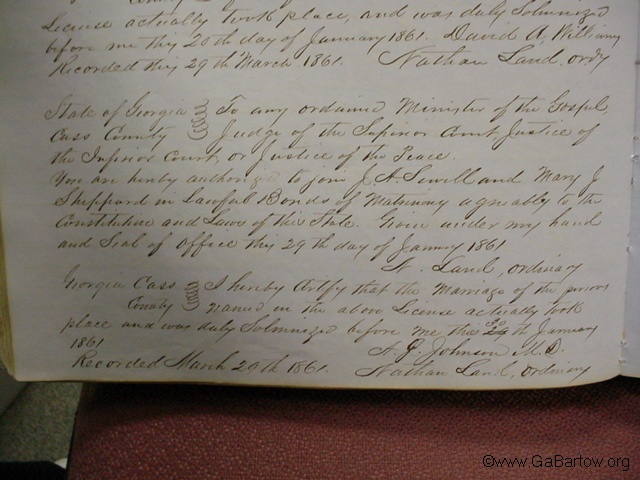 License actually took place, and was duly Solmnized
before me this 20th day of January 1861. David A. Williams
Recorded this 29th March 1861. Nathan Land, ordy
State of Georgia To any ordained Minister of the Gospel,
Cass County Judge of the Superior Court, Justice of
the Inferior Court, or Justice of the Peace.
You are hereby authorized to join J. A. Sewell and Mary J
Sheppard in Lawful Bonds of Matrimony agreably to the
Constitution and Laws of this State. Given under my hand
and Seal of Office this 29th day of January 1861
N. Land, ordinary
Georgia Cass I hereby Certify that the Marriage of the persons
County named in the above License actually took
place and was duly Solmnized before me this th January
1861 A. G. Johnson M.G.
Recorded March 29th 1861. Nathan Land, ordinary
©www.GaBartow.org